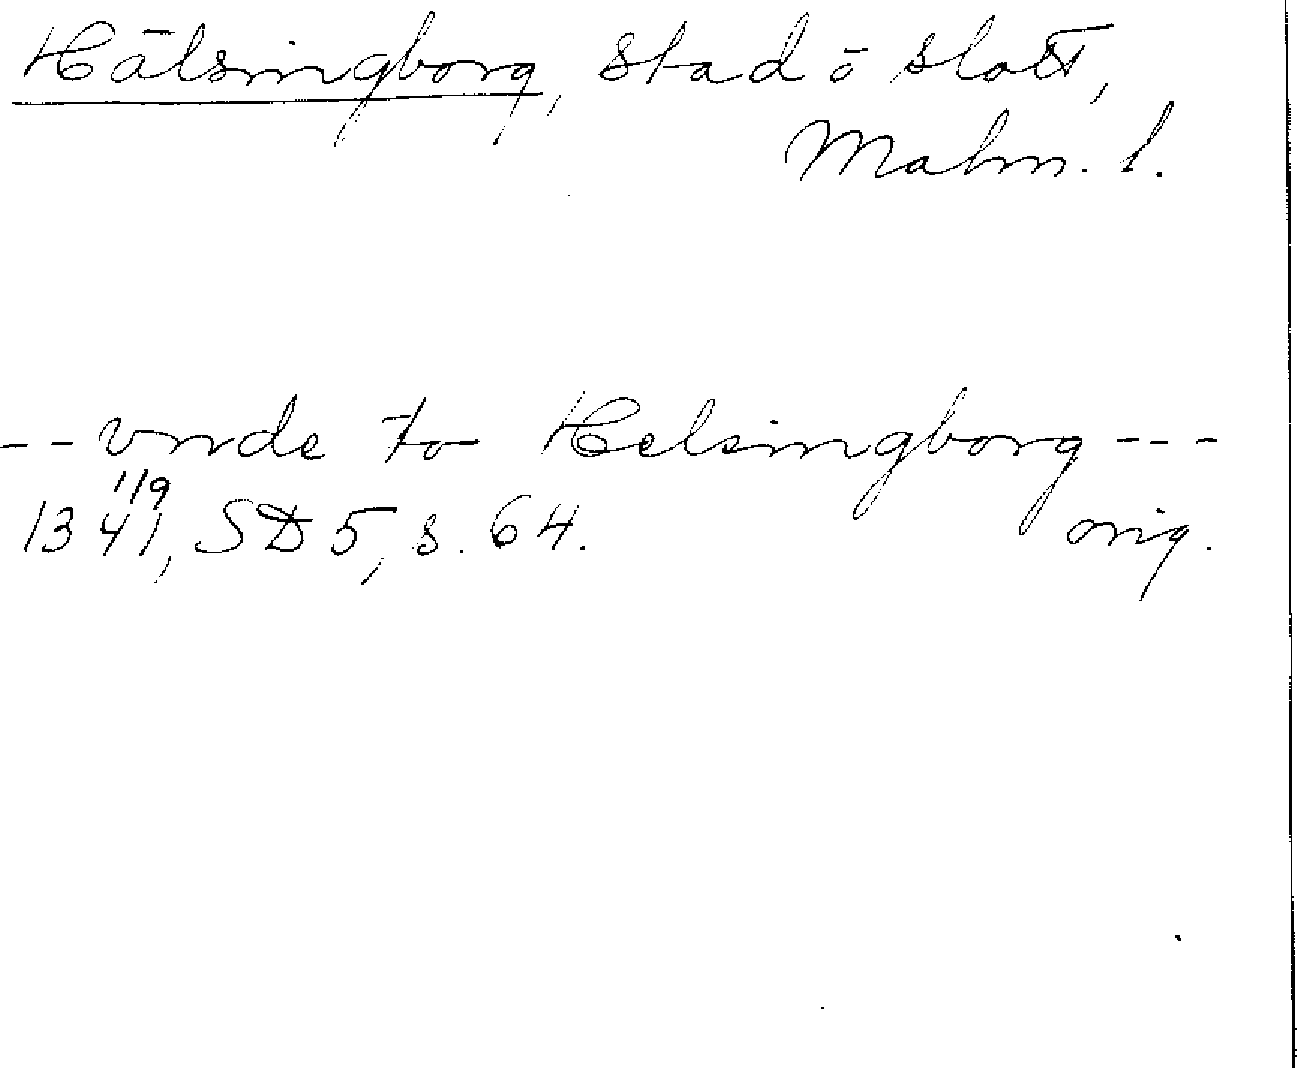 Hälsingborg, stad o slott,
Malm. l.
-- vnde to Helsingborg ---
1341 1/9, SD 5, s. 64. orig.